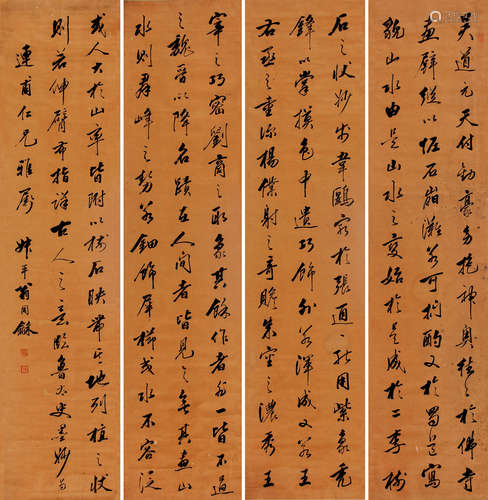 吳道元天付勁豪幼抱神奧往往於佛寺
畫壁縱以怪石崩灘若可捫酌又於蜀道寫
貌山水由是山水之變始於吳成於二李樹
石之狀妙於韋鷗窮於張通通能用紫豪禿
鋒以掌摸色中遺巧飾外若渾成又若王
右丞之重深楊僕射之奇贍朱審之濃秀王
宰之巧密劉商之取象其餘作者非一皆不過
之魏晉以降名蹟在人間者皆見之矣其畫山
水則群峰之勢若鈿飾犀櫛或水不容泛
或人大於山率皆附以樹石映帶其地列植之狀
則若伸臂布指詳古人之意臨魯太史墨妙為
連甫仁兄雅屬 叔平翁同龢